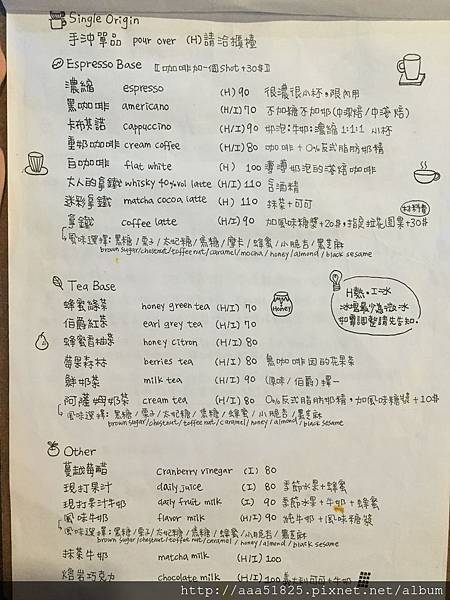 Single Origin
手沖單品 pour over (H)請洽櫃檯
Espresso Base 〖咖啡加一個shot +30$〗
濃縮 espresso (H) 90 很濃很小杯，限內用
黑咖啡 americano (H/I) 70 不加糖不加奶(中深焙/中淺焙)
卡布其諾 cappuccino (H/I) 90 奶泡:牛奶:濃縮 1:1:1 小杯
重奶咖啡 cream coffee (H/I) 80 咖啡 + 0%反式脂肪奶精
白咖啡 flat white (H) 100 薄薄奶泡的淺焙咖啡
大人的拿鐵 whisky 40%vol latte (H/I) 110 含酒精
迷彩拿鐵 matcha cocoa latte (H) 110 抹茶+可可
拿鐵 coffee latte (H/I) 90 加風味糖漿+20$,指定拉花圖案+30$
材料費
風味選擇:黑糖/栗子/太妃糖/焦糖/摩卡/蜂蜜/小脆吉/黑芝麻
brown sugar/chestnut/toffee nut/caramel/mocha/honey/almond/black sesame
Tea Base
蜂蜜綠茶 honey green tea (H/I) 70
伯爵紅茶 earl grey tea (H/I) 70
蜂蜜香柚茶 honey citron (H/I) 80
莓果森林 berries tea (H/I) 80 無咖啡因的花果茶
鮮奶茶 milk tea (H/I) 90 (原味/伯爵)擇一
阿薩姆奶茶 cream tea (H/I) 80 0%反式脂肪奶精,加風味糖漿+10$
風味選擇:黑糖/栗子/太妃糖/焦糖/蜂蜜/小脆吉/黑芝麻
brown sugar/chestnut/toffee nut/caramel/honey/almond/black sesame
Honey
H熱．I冰
冰塊最少為微冰
如需調整請先告知.
Other
蔓越莓醋 Cranberry vinegar (I) 80
現打果汁 daily juice (I) 80 季節水果+蜂蜜
現打果汁牛奶 daily fruit milk (I) 90 季節水果+牛奶+蜂蜜
風味牛奶 flavor milk (H/I) 90 純牛奶+風味糖漿
風味選擇:黑糖/栗子/太妃糖/焦糖/蜂蜜/小脆吉/黑芝麻
brown sugar/chestnut/toffee nut/caramel/honey/almond/black sesame
抹茶牛奶 matcha milk (H/I) 100
熔岩巧克力 chocolate milk (H/I) 100 義大利可可+牛奶
http://aaa51825.pixnet.net/album